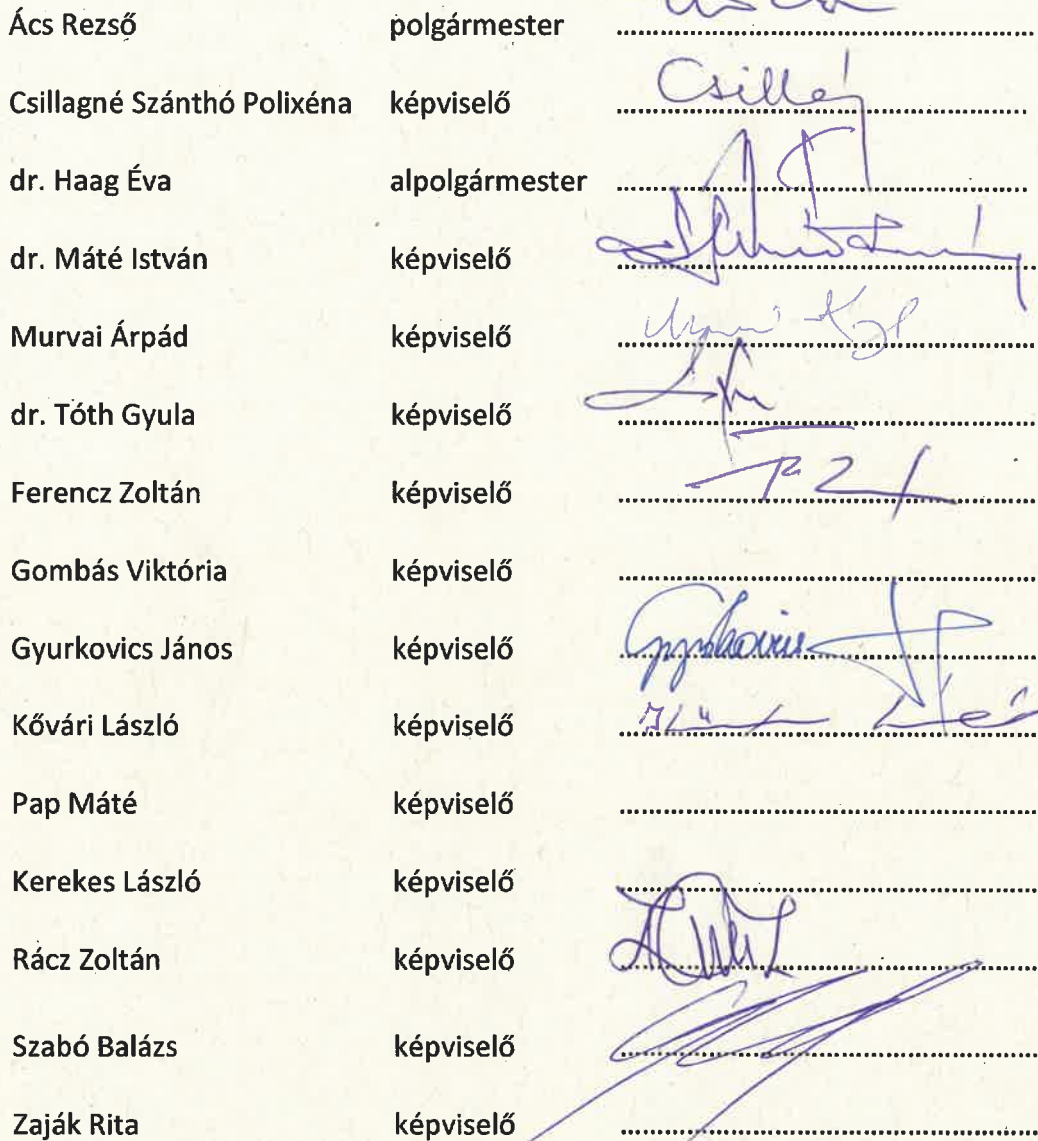 Ács Rezső polgármester ........................................
Csillagné Szánthó Polixéna képviselő ........................................ Csillag
dr. Haag Éva alpolgármester ........................................
dr. Máté István képviselő ........................................
Murvai Árpád képviselő ........................................
dr. Tóth Gyula képviselő ........................................
Ferencz Zoltán képviselő ........................................
Gombás Viktória képviselő ........................................
Gyurkovics János képviselő ........................................ Gyurkovics
Kővári László képviselő ........................................
Pap Máté képviselő ........................................
Kerekes László képviselő ........................................
Rácz Zoltán képviselő ........................................
Szabó Balázs képviselő ........................................
Zaják Rita képviselő ........................................